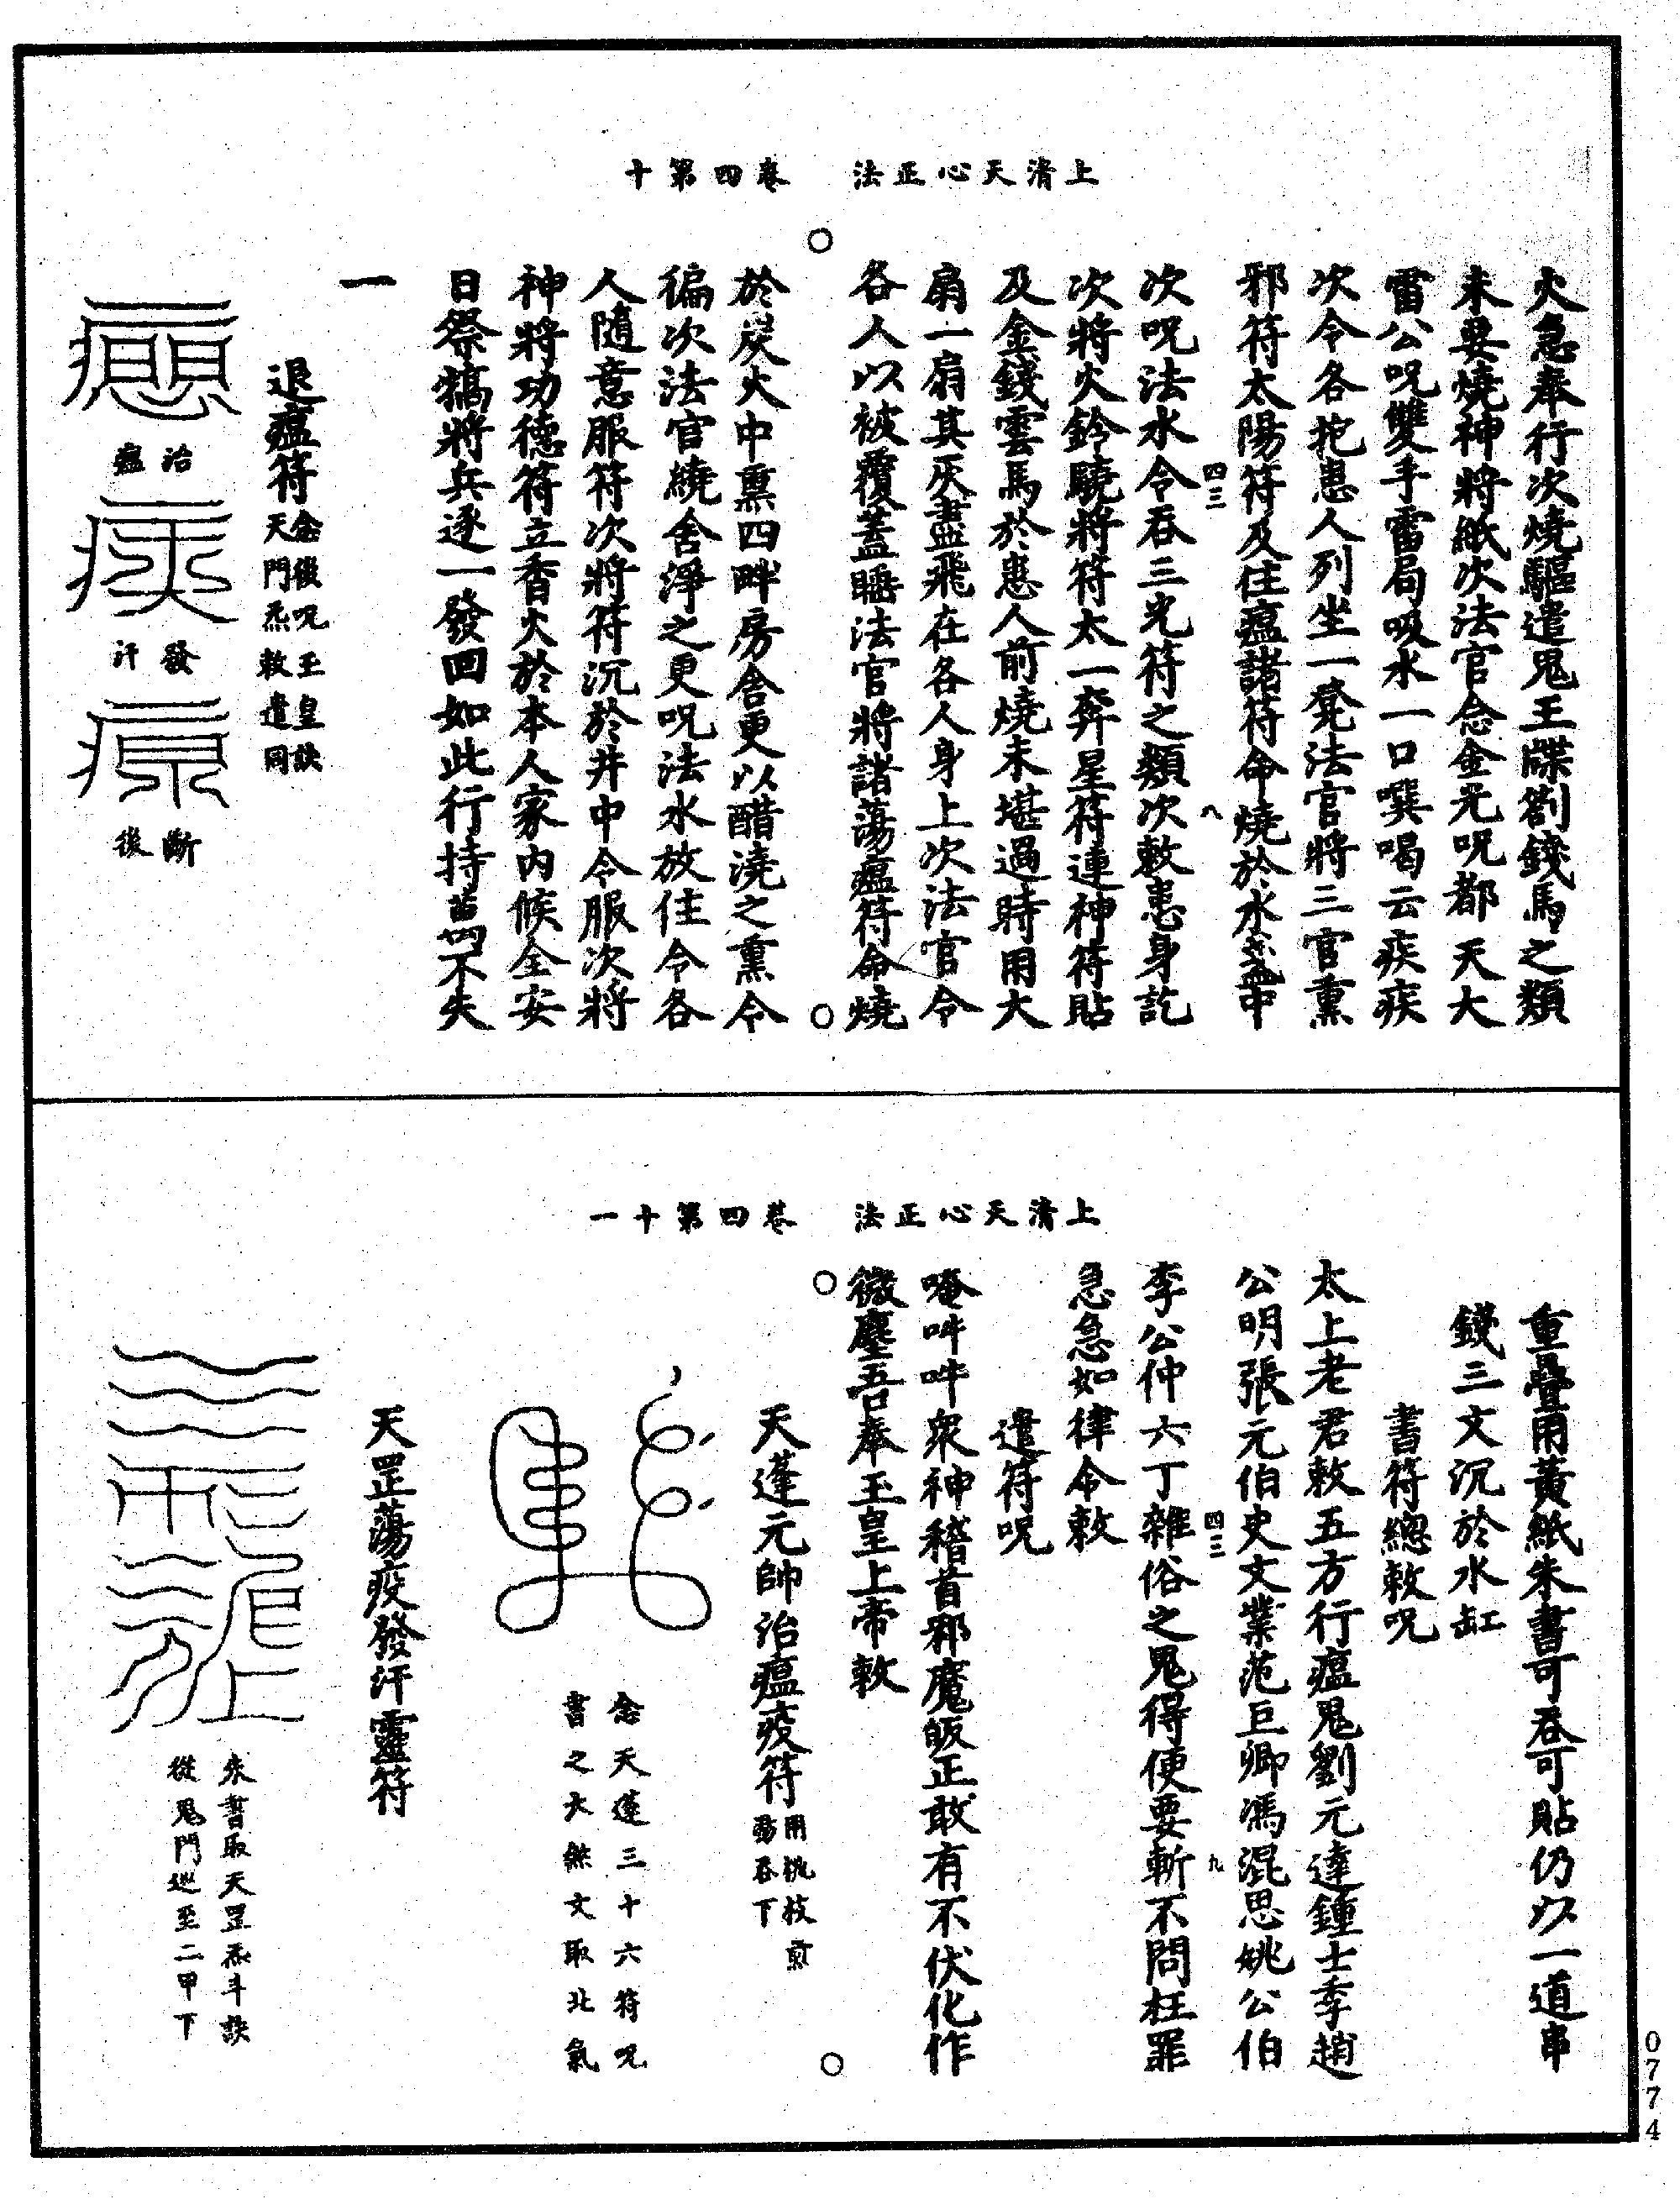 上清天心正法　卷四第十
火急奉行次燒驅遣鬼王牒劄錢馬之類
未要燒神將紙次法官念金光呪都天大
雷公呪雙手雷局吸水一口噀喝云疾疾
次令各抱患人列坐一凳法官將三官熏
邪符太陽符及住瘟諸符命燒於水盞中
四三　八
次呪法水令吞三光符之類次敕患身訖
次將火鈴驍將符太一奔星符連神符貼
及金錢雲馬於患人前燒未堪過時用大
扇一扇其灰盡飛在各人身上次法官令
各人以被覆蓋睡法官將諸蕩瘟符命燒
於炭火中熏四畔房舍更以醋澆之熏令
徧次法官繞舍淨之更呪法水放住令各
人隨意服符次將符沉於井中令服次將
神將功德符立香火於本人家內候全安
日祭犒將兵逐一發回如此行持萬不失
一
退瘟符
念後呪玉皇訣
天門炁敕遣同
治瘟
發汗
斷後
上清天心正法　卷四第十一
重疊用黃紙朱書可吞可貼仍以一道串
錢三文沉於水缸
書符總敕呪
太上老君敕五方行瘟鬼劉元達鍾士季趙
公明張元伯史文業范巨卿馮混思姚公伯
四三　九
李公仲六丁雜俗之鬼得便要斬不問枉罪
急急如律令敕
遣符呪
唵吽吽衆神稽首邪魔皈正敢有不伏化作
微塵吾奉玉皇上帝敕
天蓬元帥治瘟疫符
用桃枝煎
湯吞下
念天蓬三十六符呪
書之大煞文取北氣
天罡蕩疫發汗靈符
朱書取天罡炁斗訣
從鬼門巡至二甲下
0774